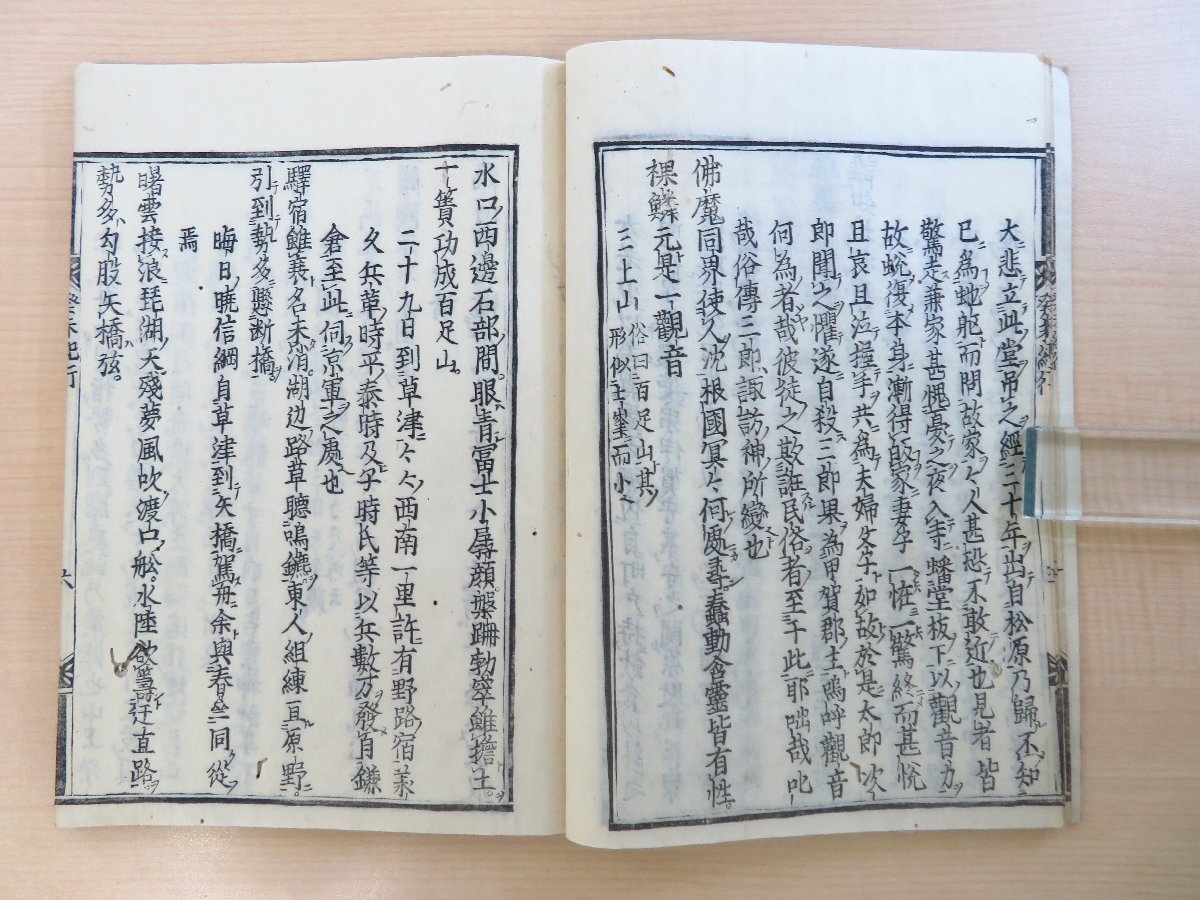 大悲立此堂吊之經三十年出自松原乃歸不知
已為虵𧉧而問故家々人甚恐不敢近也見者皆
驚走兼家甚愧憂之夜入寺蟠堂板下以觀音力
故蛻復本身漸得皈家妻子一恠一驚終而甚悅
且哀且泣握手共為夫婦父子如故於是太郎次
即聞之懼遂自殺三郎果為甲賀郡主嗚呼觀音
何為者哉彼徒之欺誑民俗者至于此耶咄哉叱
哉俗傳三郎諏訪神所變也
佛魔同界使人沈根國冥々何處尋蠢動含靈皆有性
裸鱗元是一觀音
三上山 俗曰百足山其
形似士峯而小
水口西邊石部間眼青富士小孱顏盤跚勃窣雖擔土
十簣功成百足山
二十九日到草津々々西南一里許有野路宿義
久兵革時平泰時及子時氏等以兵數万發自鎌
倉至此伺京軍之處也
驛宿雖衰名未消湖边路草聽鳴鑣東人組練亘原野
引到勢多懸断橋
晦日曉信綱自草津到矢橋駕舟余與春益同從
焉
曙雲接浪琵琶湖天殘夢風吹渡口舩水陸欲籌迂直路
勢多勾股矢橋弦
癸未紀行
六